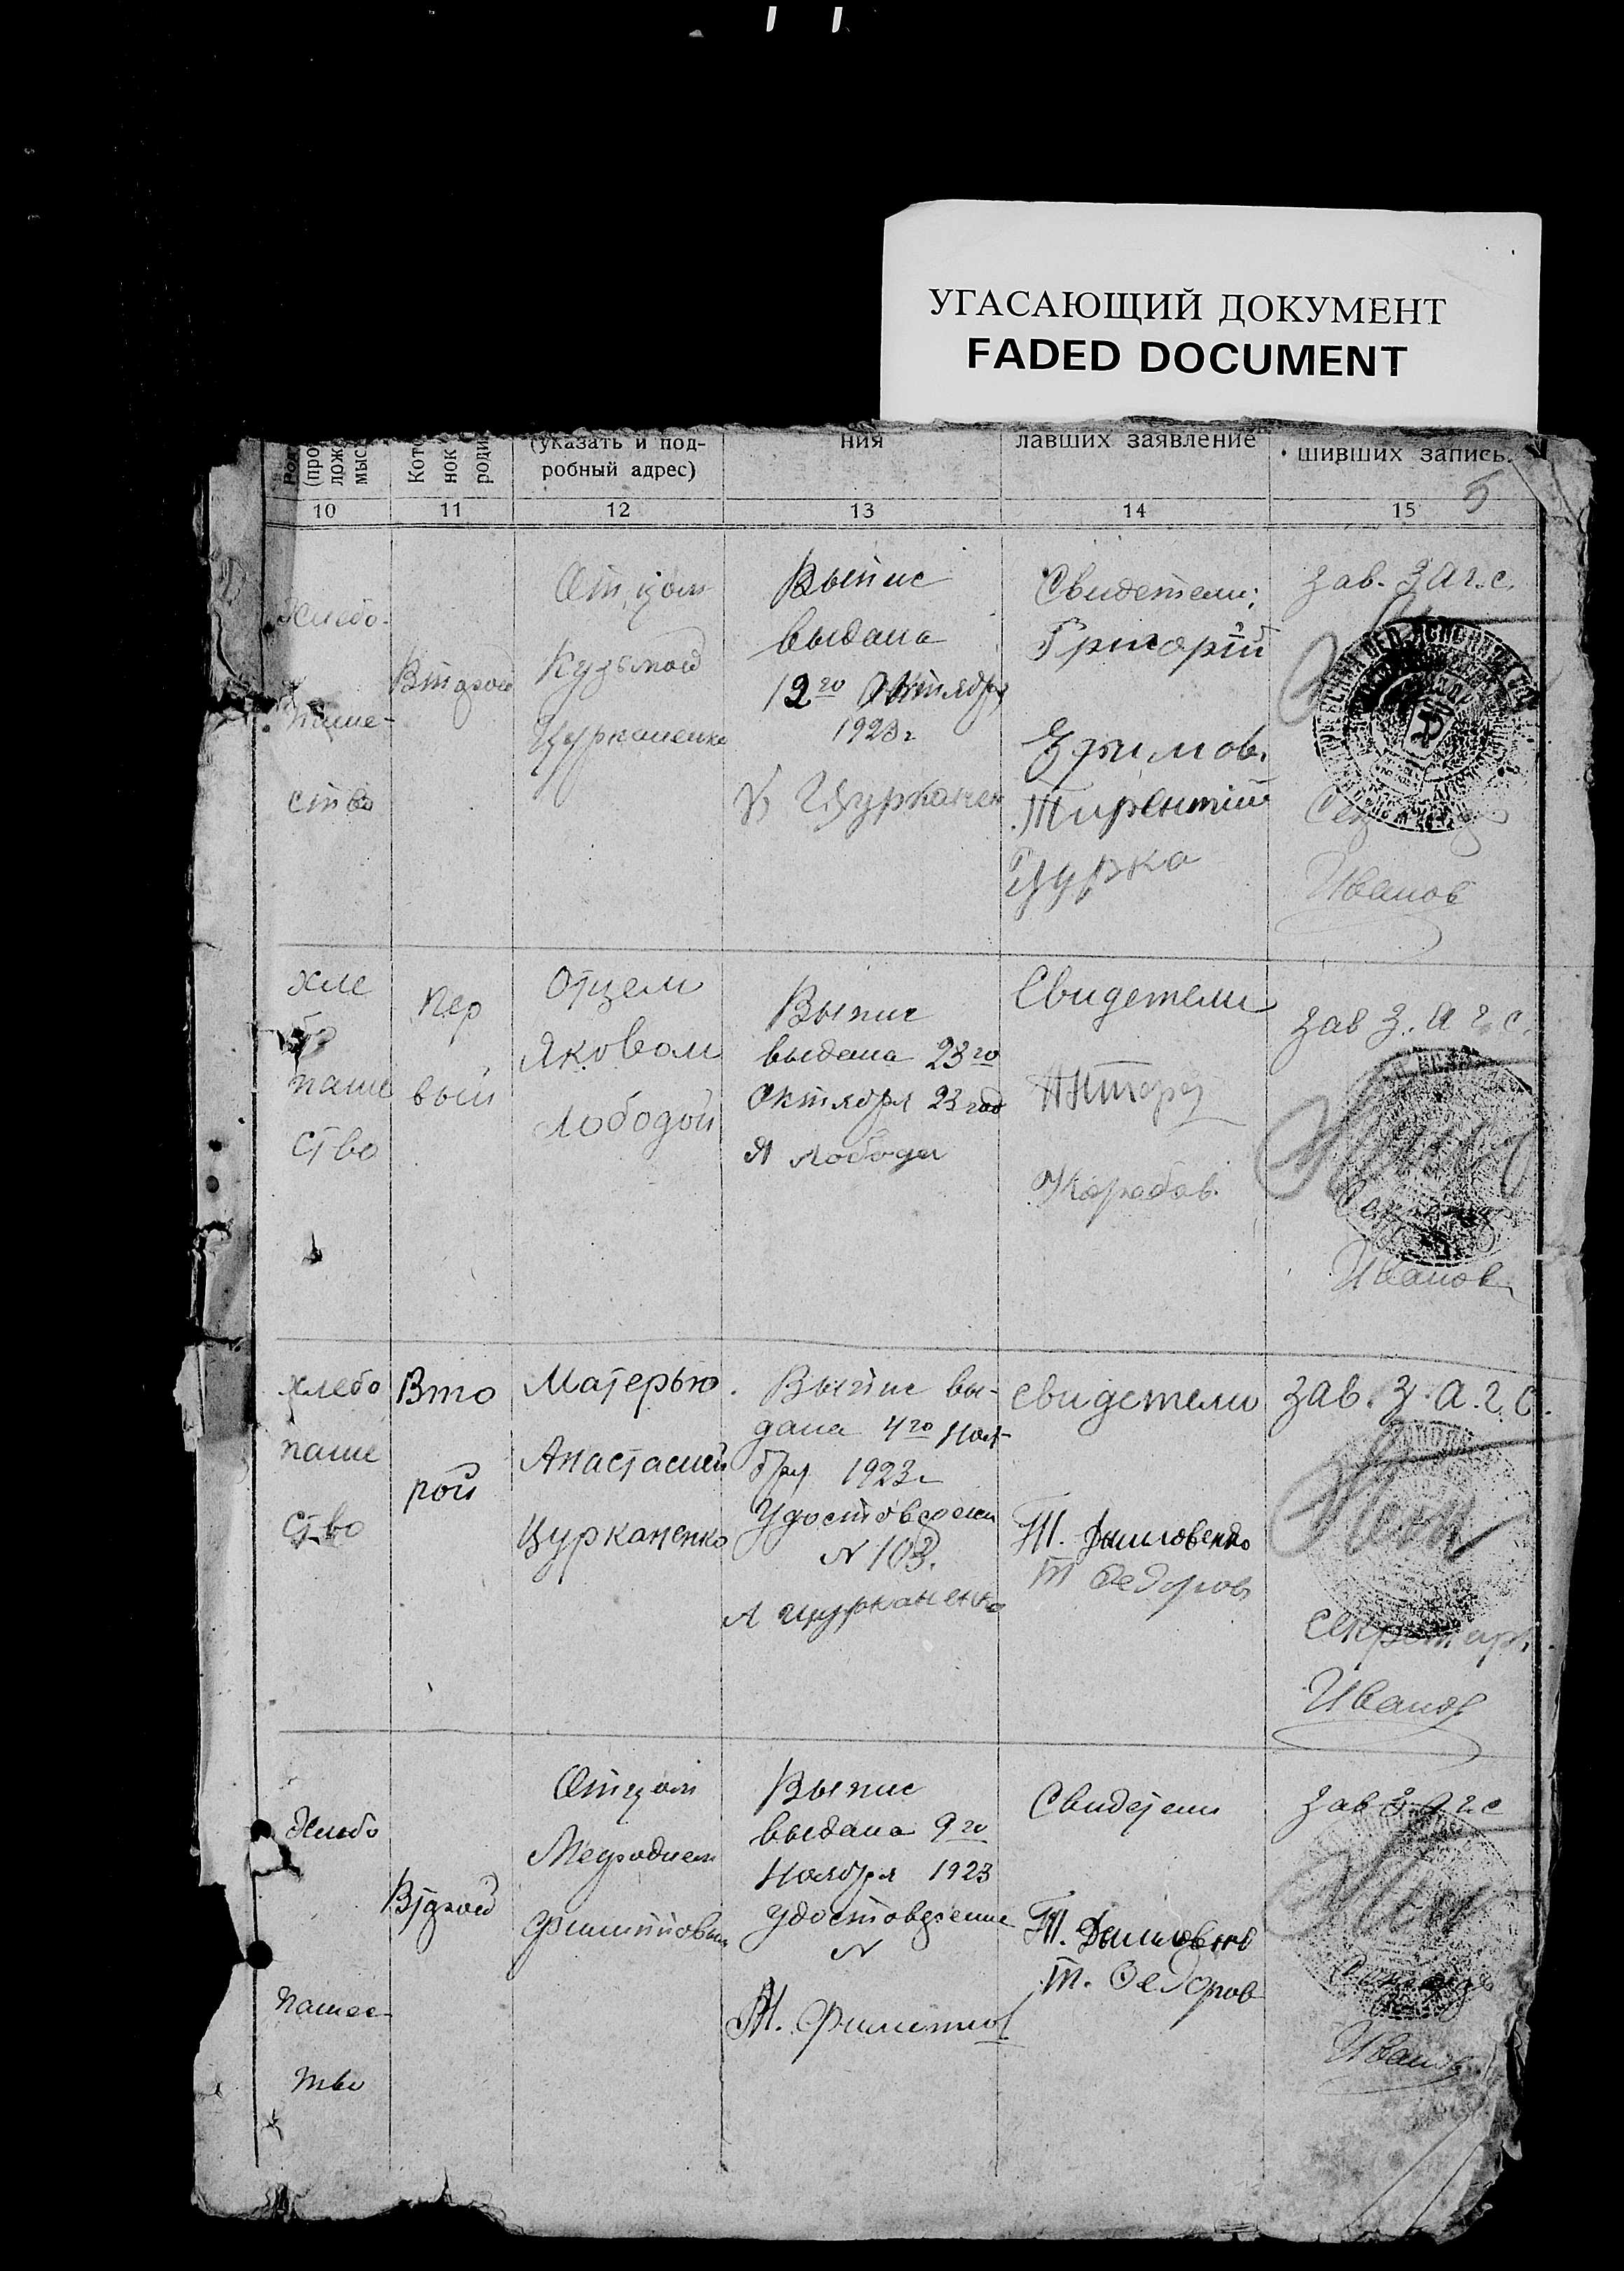 УГАСАЮЩИЙ ДОКУМЕНТ
FADED DOCUMENT
(указать и под-
робный адрес)
ния
лавших заявление
шивших запись.
5
10
11
12
13
14
15
Хлебо-
паше-
ство
Второй
Отцом
Кузьмой
Цурканенко
Выпис
выдана
12го Октября
1923 г
Цурканен
Свидетели:
Григорій
Тирентий
Цурка
Зав. ЗАГ.С.
Иванов
Хле
бо
паше
ство
пер
вый
Отцем
Яковом
Лободой
Выпис
выдана 23го
Октября 23 год
Я Лобода
Свидетели
Зав З. А Г. С.
Иванов
хлебо
паше
ство
Вто
рой
Матерью
Анастасией
Цурканенко
Выпис вы-
дана 4го Ноя-
бря 1923 г
Удостоверени
N 103.
А Цурканенко
свидетели
Т Федоров
Зав. З. А. Г. С.
Секретарь
Иванов
Хлебо
пашес-
тво
Второй
Отцом
Выпис
выдана 9го
Ноября 1923
удостоверение
N
Свидетели
Т. Федоров
Зав З А Г С
Иванов